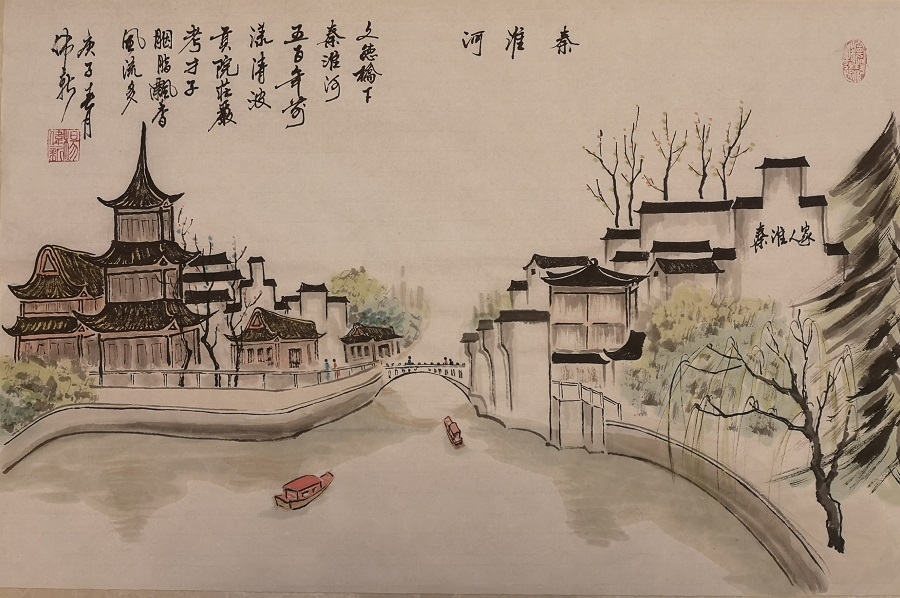 秦淮河
文德橋下
秦淮河
五百年前
漾清波
貢院莊嚴
考才子
胭脂飄香
風流多
庚子春月
秦淮人家